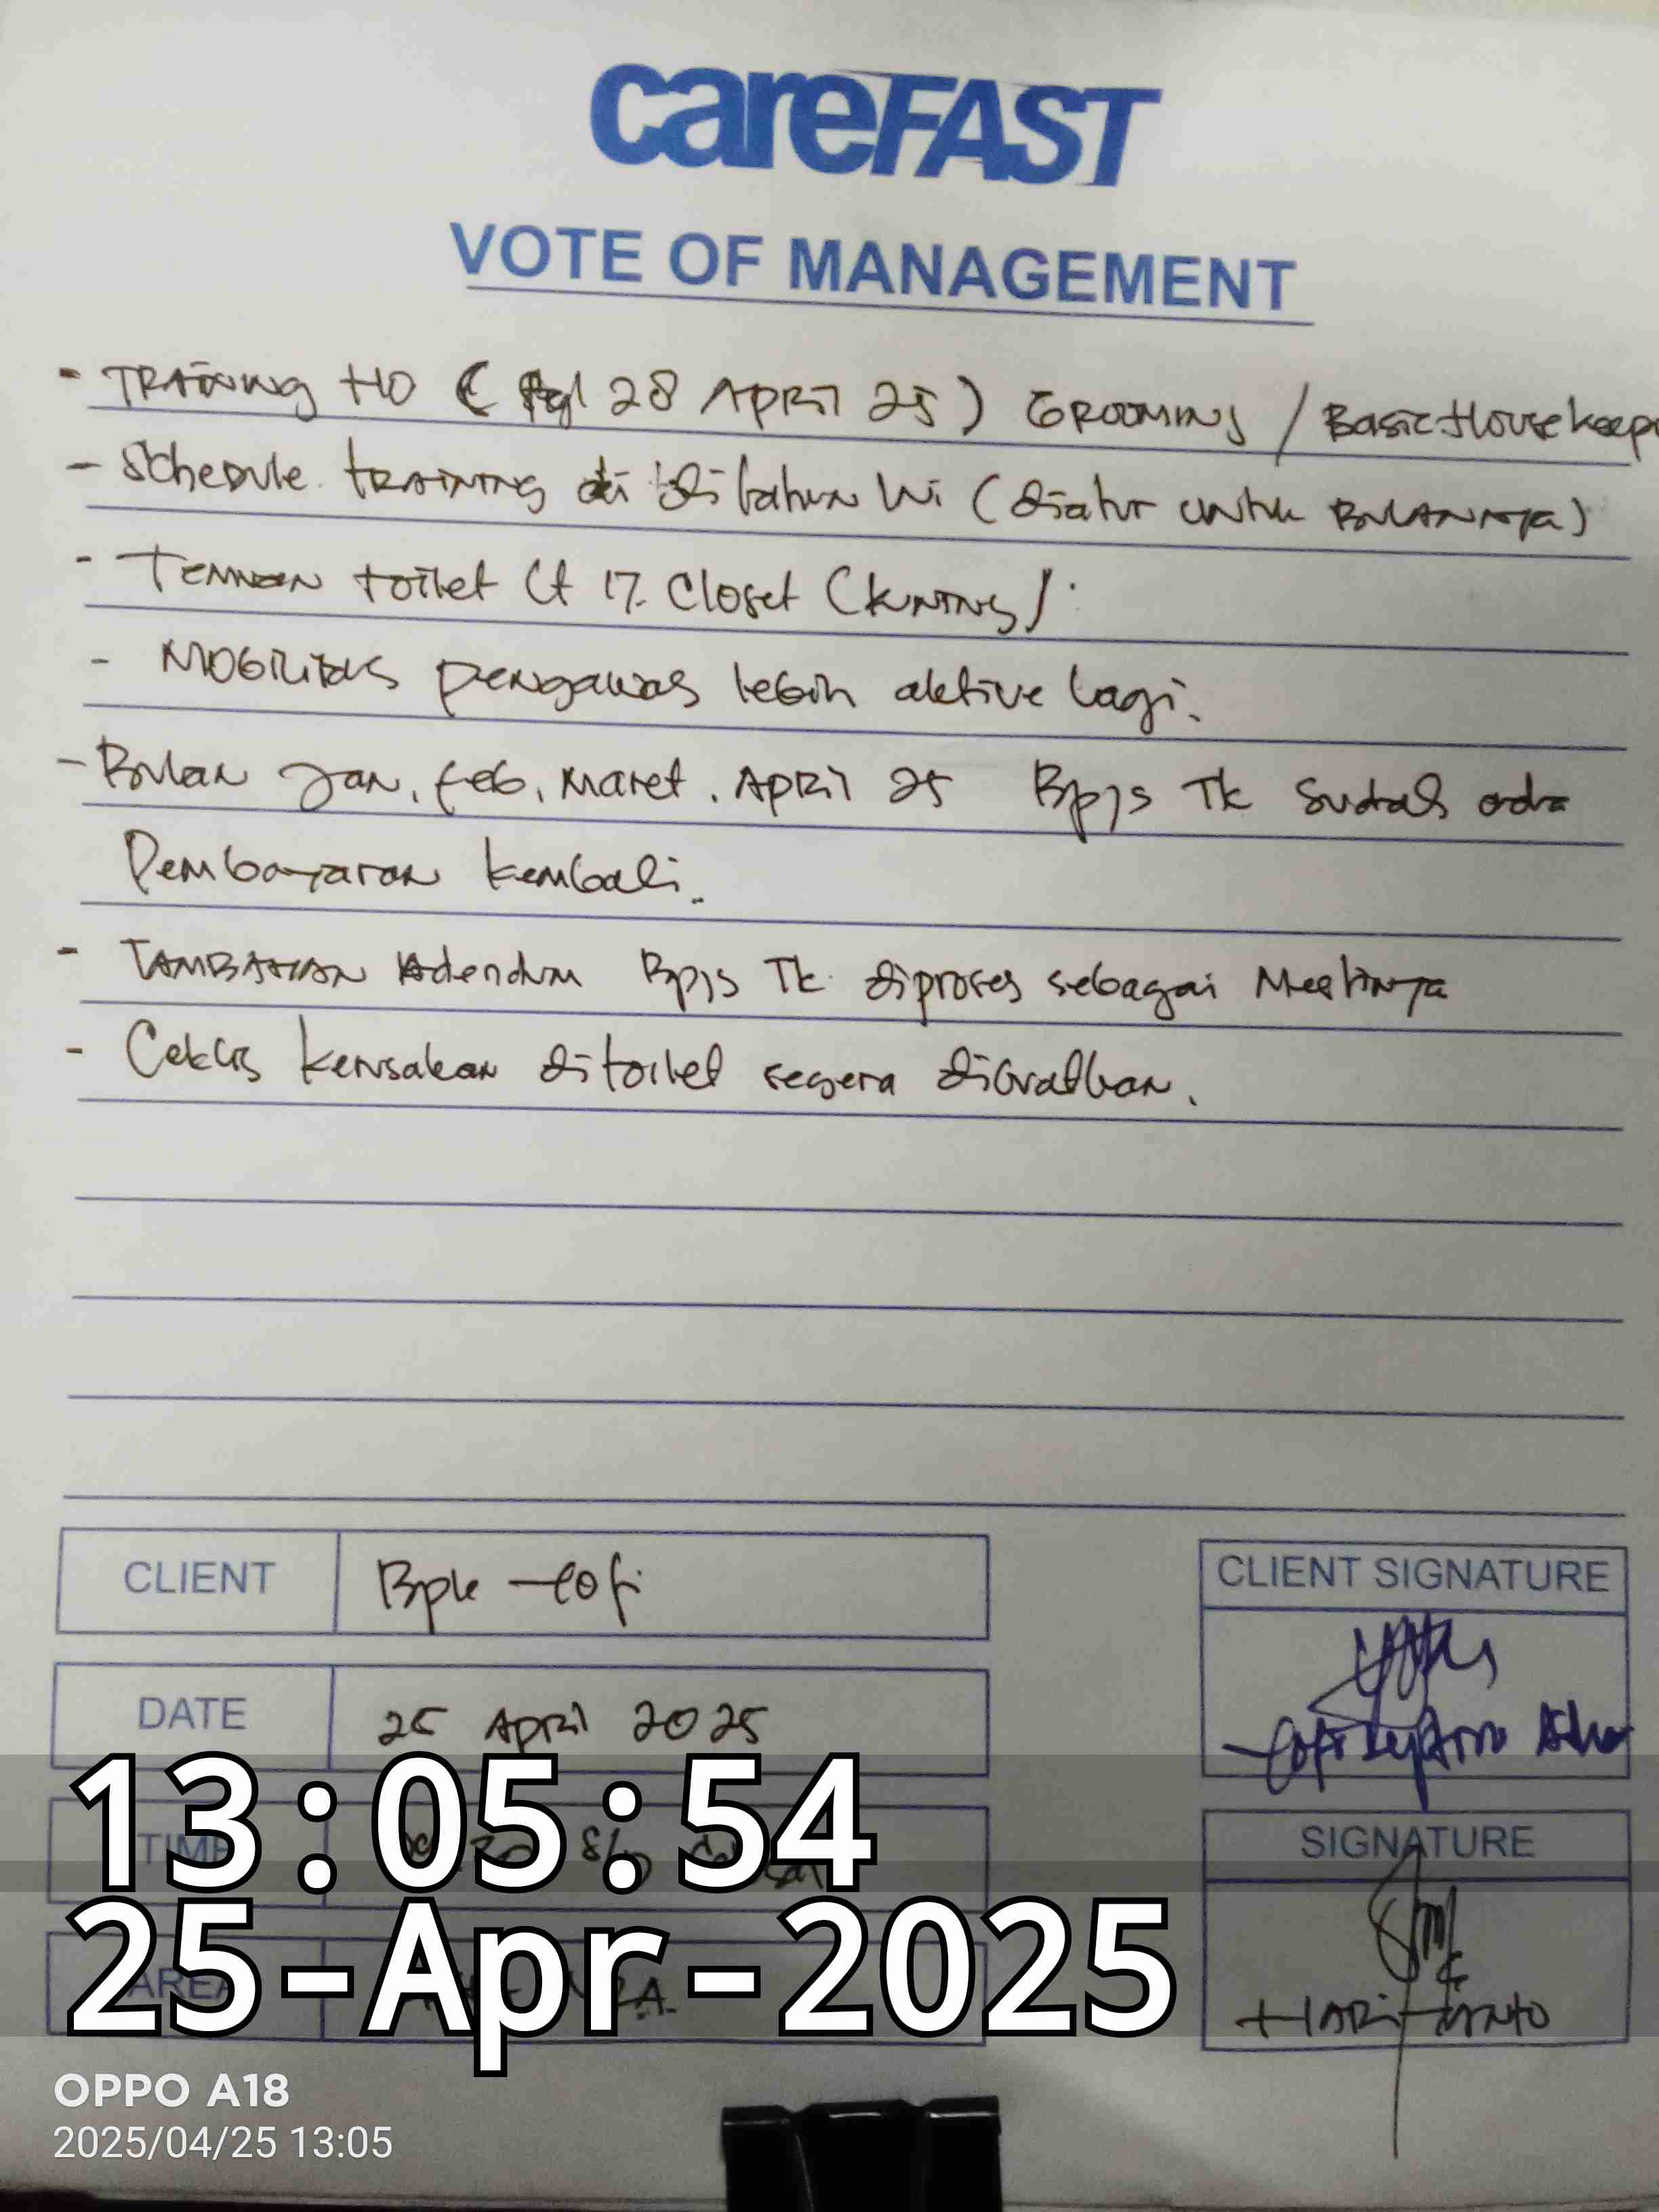 careFAST
VOTE OF MANAGEMENT
- TRAINING HO ( Tgl 28 APRIL 25 ) GROOMING / Basic Housekeep
- Schedule training di tahun ini ( diatur untuk BULANNYA )
- Temuan toilet Lt 17. Closet ( kuning ).
- MOBILITAS pengawas lebih aktive lagi.
- Bulan Jan, Feb, Maret, APRIL 25 Bpjs TK sudah ada
Pembayaran kembali.
- TAMBAHAN Adendum Bpjs TK diproses sebagai Mestinya
- Ceklis kerusakan ditoilet segera dibuatkan.
CLIENT
Bpk Yofi
CLIENT SIGNATURE
DATE
25 April 2025
Yofi
TIME
S/D
SIGNATURE
AREA
HARIYANTO
13:05:54
25-Apr-2025
OPPO A18
2025/04/25 13:05